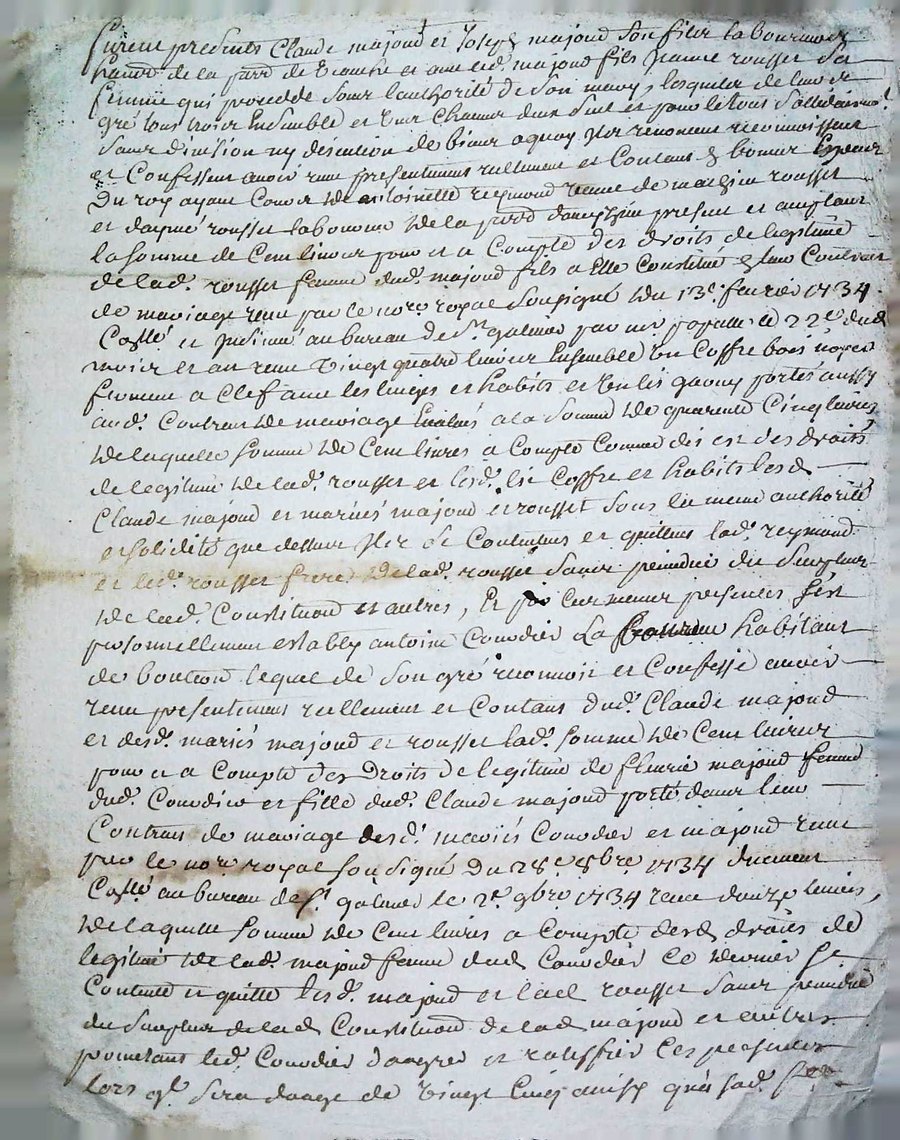 furent presents Claude majoud et Joseph majoud son fils laboureur
habitd. de la parr. de et avec led. majoud fils Jeanne rousset sa
femme qui procede sous l'authorité de son mary, lesquels de leur
gré tous trois Ensemble et Un Chacun d'eux seul et pour le tous solidairemt.
sans division ny discution de biens a quoy Ils renoncent reconnoissent
et Confessent avoir reçu presentement reellement et Contant En bonnes Especes
Du roy ayant Cours de antoinette reymond veuve de rousset
et rousset laboureur de la parr. present et acceptant
la somme de Cent livres pour et a Compte des droits de legitime
de lad. rousset femme dud. majoud fils a Elle Constitué En leur Contrat
de mariage reçu par le nore. royal soussigné du 13e. fevrier 1734.
Collé. et Insinué au bureau de St. galmier par le 22e. dud.
mois et an reçu vingt quatre livres Ensemble Un Coffre bois noyer
fermant a Clef avec les linges et habits et Un lit garny portés aussy
aud. Contrat de mariage Evalués a la somme de quarente Cinq livres
de laquelle somme de Cent livres a Compte Comme dit est des droits
de legitime de lad. rousset et desd. lit Coffre et habits lesd.
Claude majoud et mariés majoud et rousset sous la meme authorité
et solidité que dessus Ils se Contentent et quittent lad. reymond
et led. rousset frere de lad. rousset sans prejudice du surplus
de lad. Constitution et autres, Et par Ces memes presentes s'est
personnellement estably antoine Couvdier habitant
de bouteon lequel de son gré reconnoit et Confesse avoir
reçu presentement reellement et Contant dud. Claude majoud
et desd. mariés majoud et rousset lad. somme de Cent livres
pour et a Compte des Droits de legitime de fleurie majoud femme
dud. Couvdier et fille dud. Claude majoud porté dans leur
Contrat de mariage desd. mariés Couvdier et majoud reçu
par le nore. royal soussigné du 28e. 8bre. 1734 duement
Collé. au bureau de St. galmier le 2e. 9bre. 1734 reçu douze livres,
de laquelle somme de Cent livres a Compte desd. droits de
legitime de lad. majoud femme dud. Couvdier Ce dernier se
Contente et quitte lesd. majoud et lad. rousset sans prejudice
du surplus de lad. Constitution de lad. majoud et autres
promettant led. Couvdier d'agreer et ratiffier Ces presentes
lors ql. sera d'aage de vingt Cinq ans et que lad.